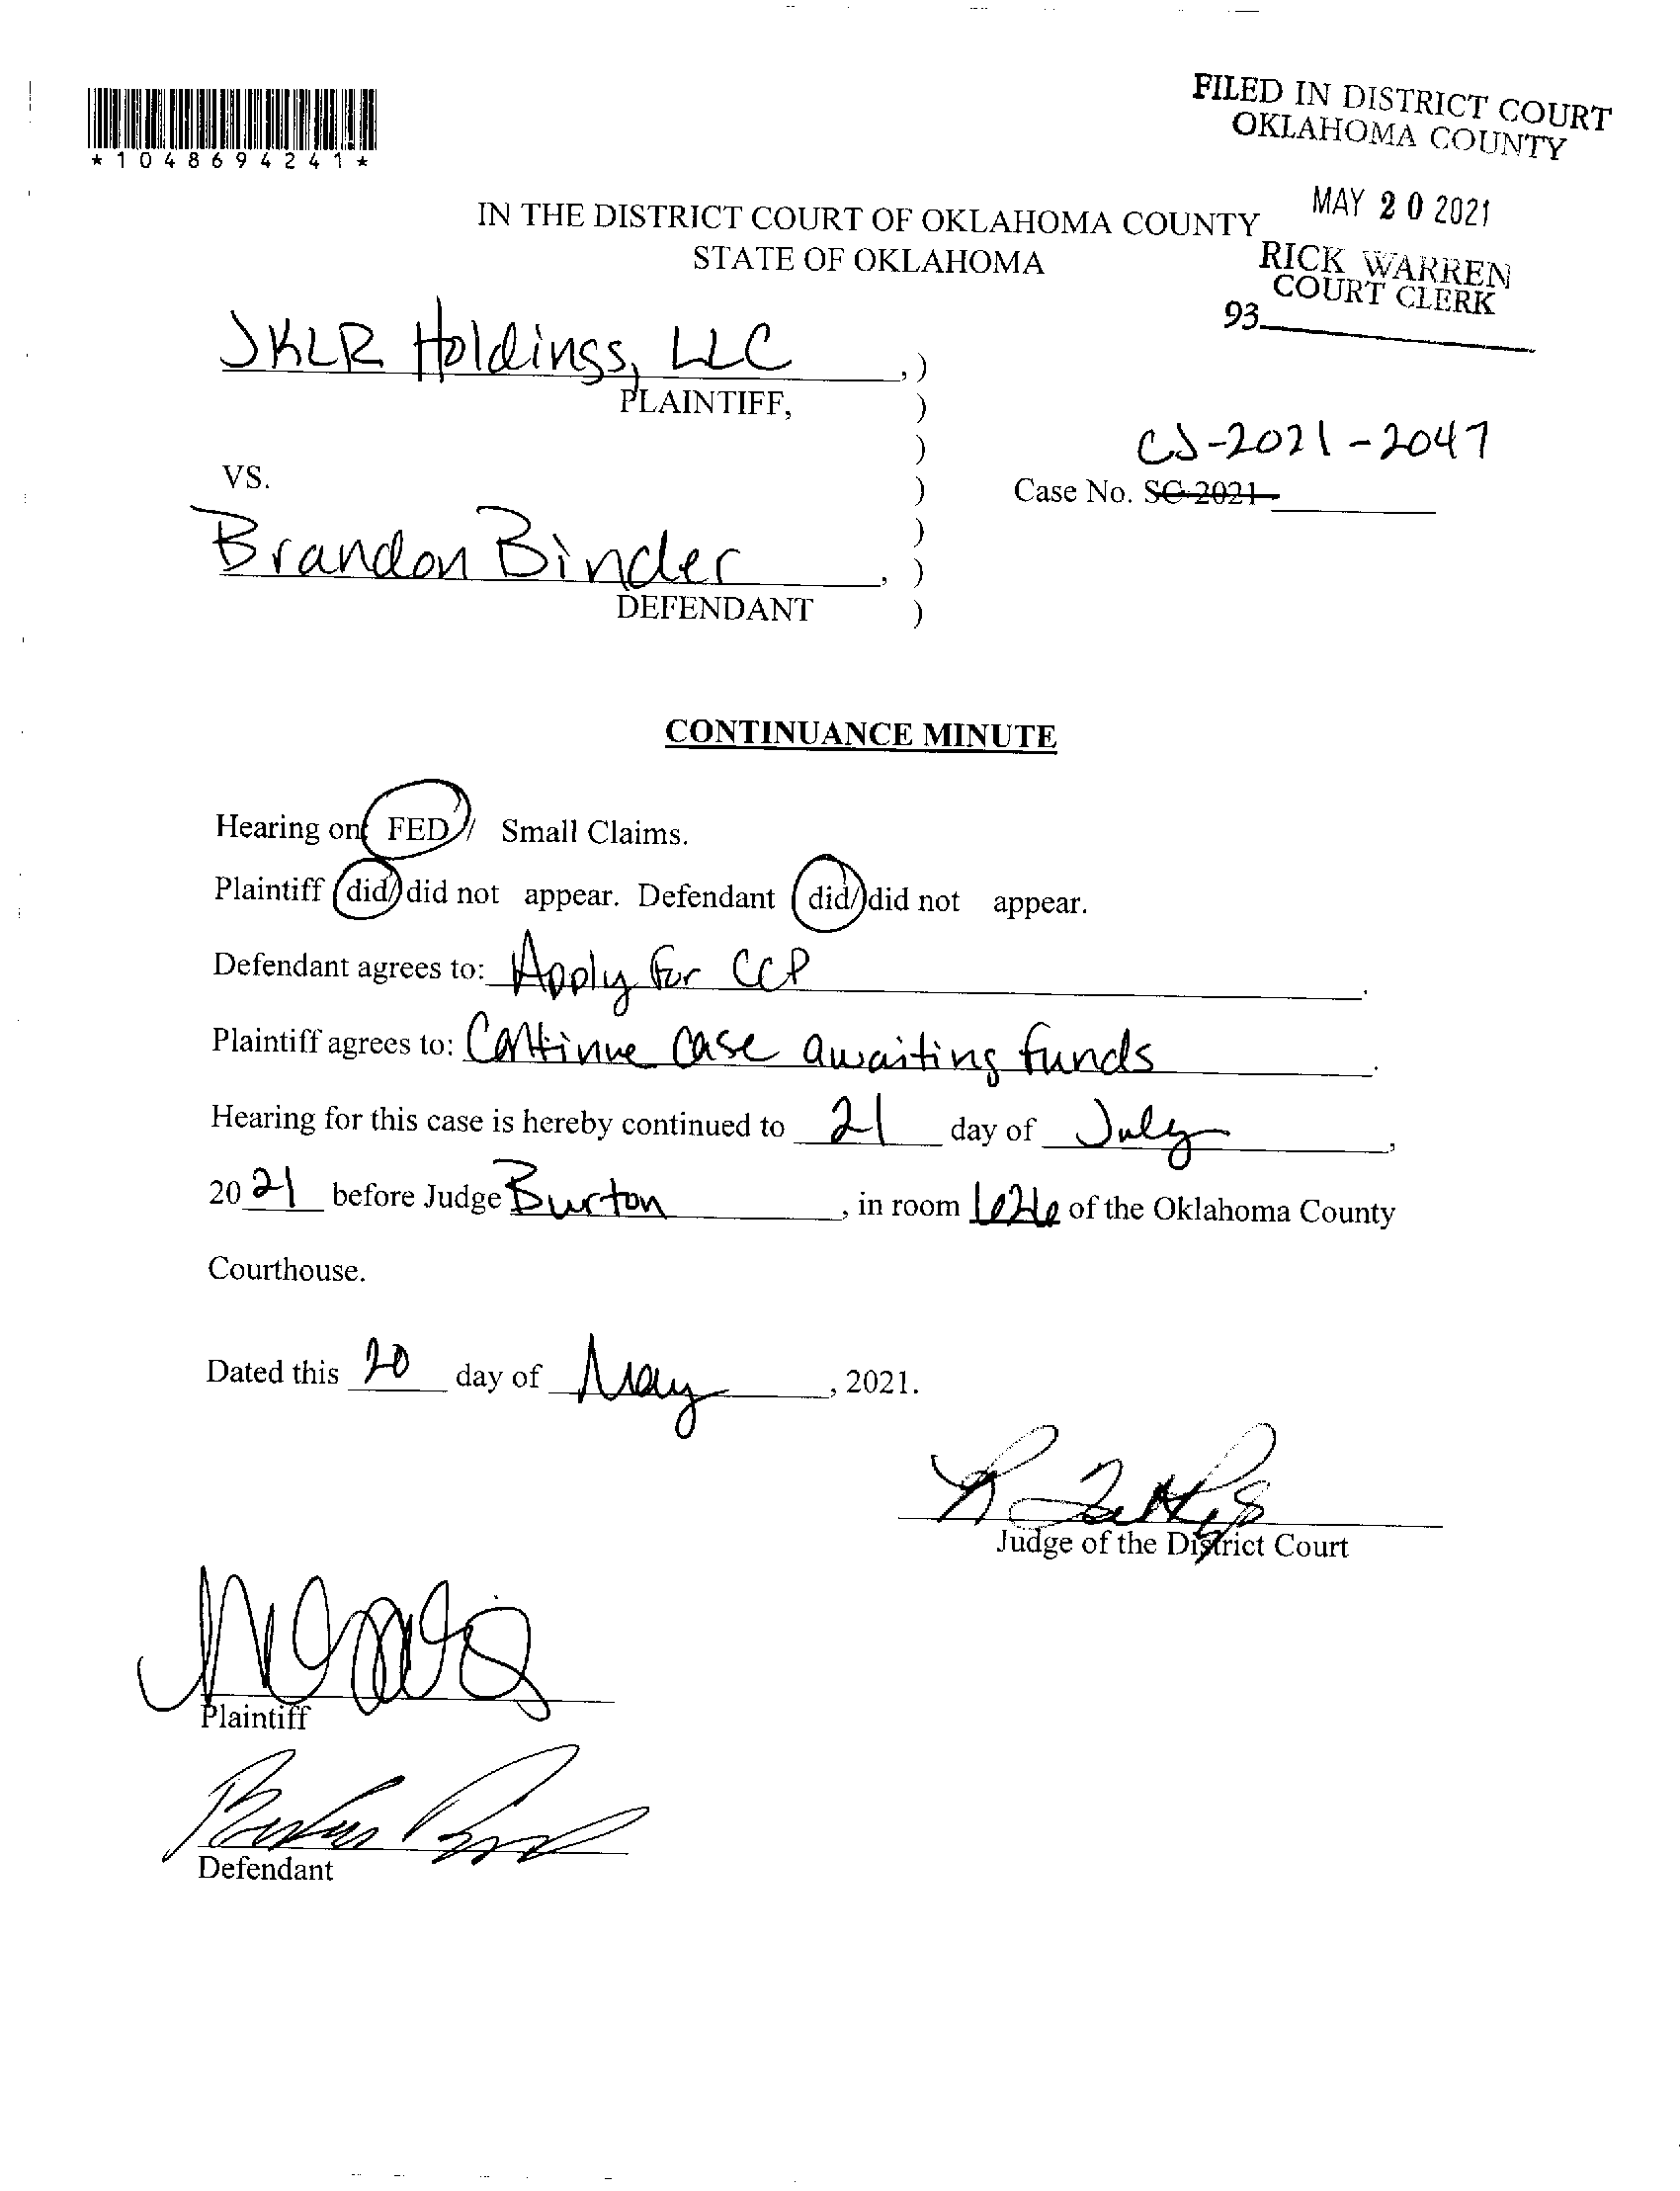 *1048694241*
FILED IN DISTRICT COURT
OKLAHOMA COUNTY
MAY 20 2021
RICK WARREN
COURT CLERK
93
IN THE DISTRICT COURT OF OKLAHOMA COUNTY
STATE OF OKLAHOMA
JKLR Holdings, LLC,)
PLAINTIFF, )
)
CJ-2021-2047
VS. )
Case No. SC-2021-
)
Brandon Binder, )
DEFENDANT )
CONTINUANCE MINUTE
Hearing on: FED // Small Claims.
Plaintiff did/ did not appear. Defendant did/ did not appear.
Defendant agrees to: Apply for CCP.
Plaintiff agrees to: Continue case awaiting funds.
Hearing for this case is hereby continued to 21 day of July,
2021 before Judge Burton, in room 626 of the Oklahoma County
Courthouse.
Dated this 20 day of May, 2021.
Judge of the District Court
Plaintiff
Defendant